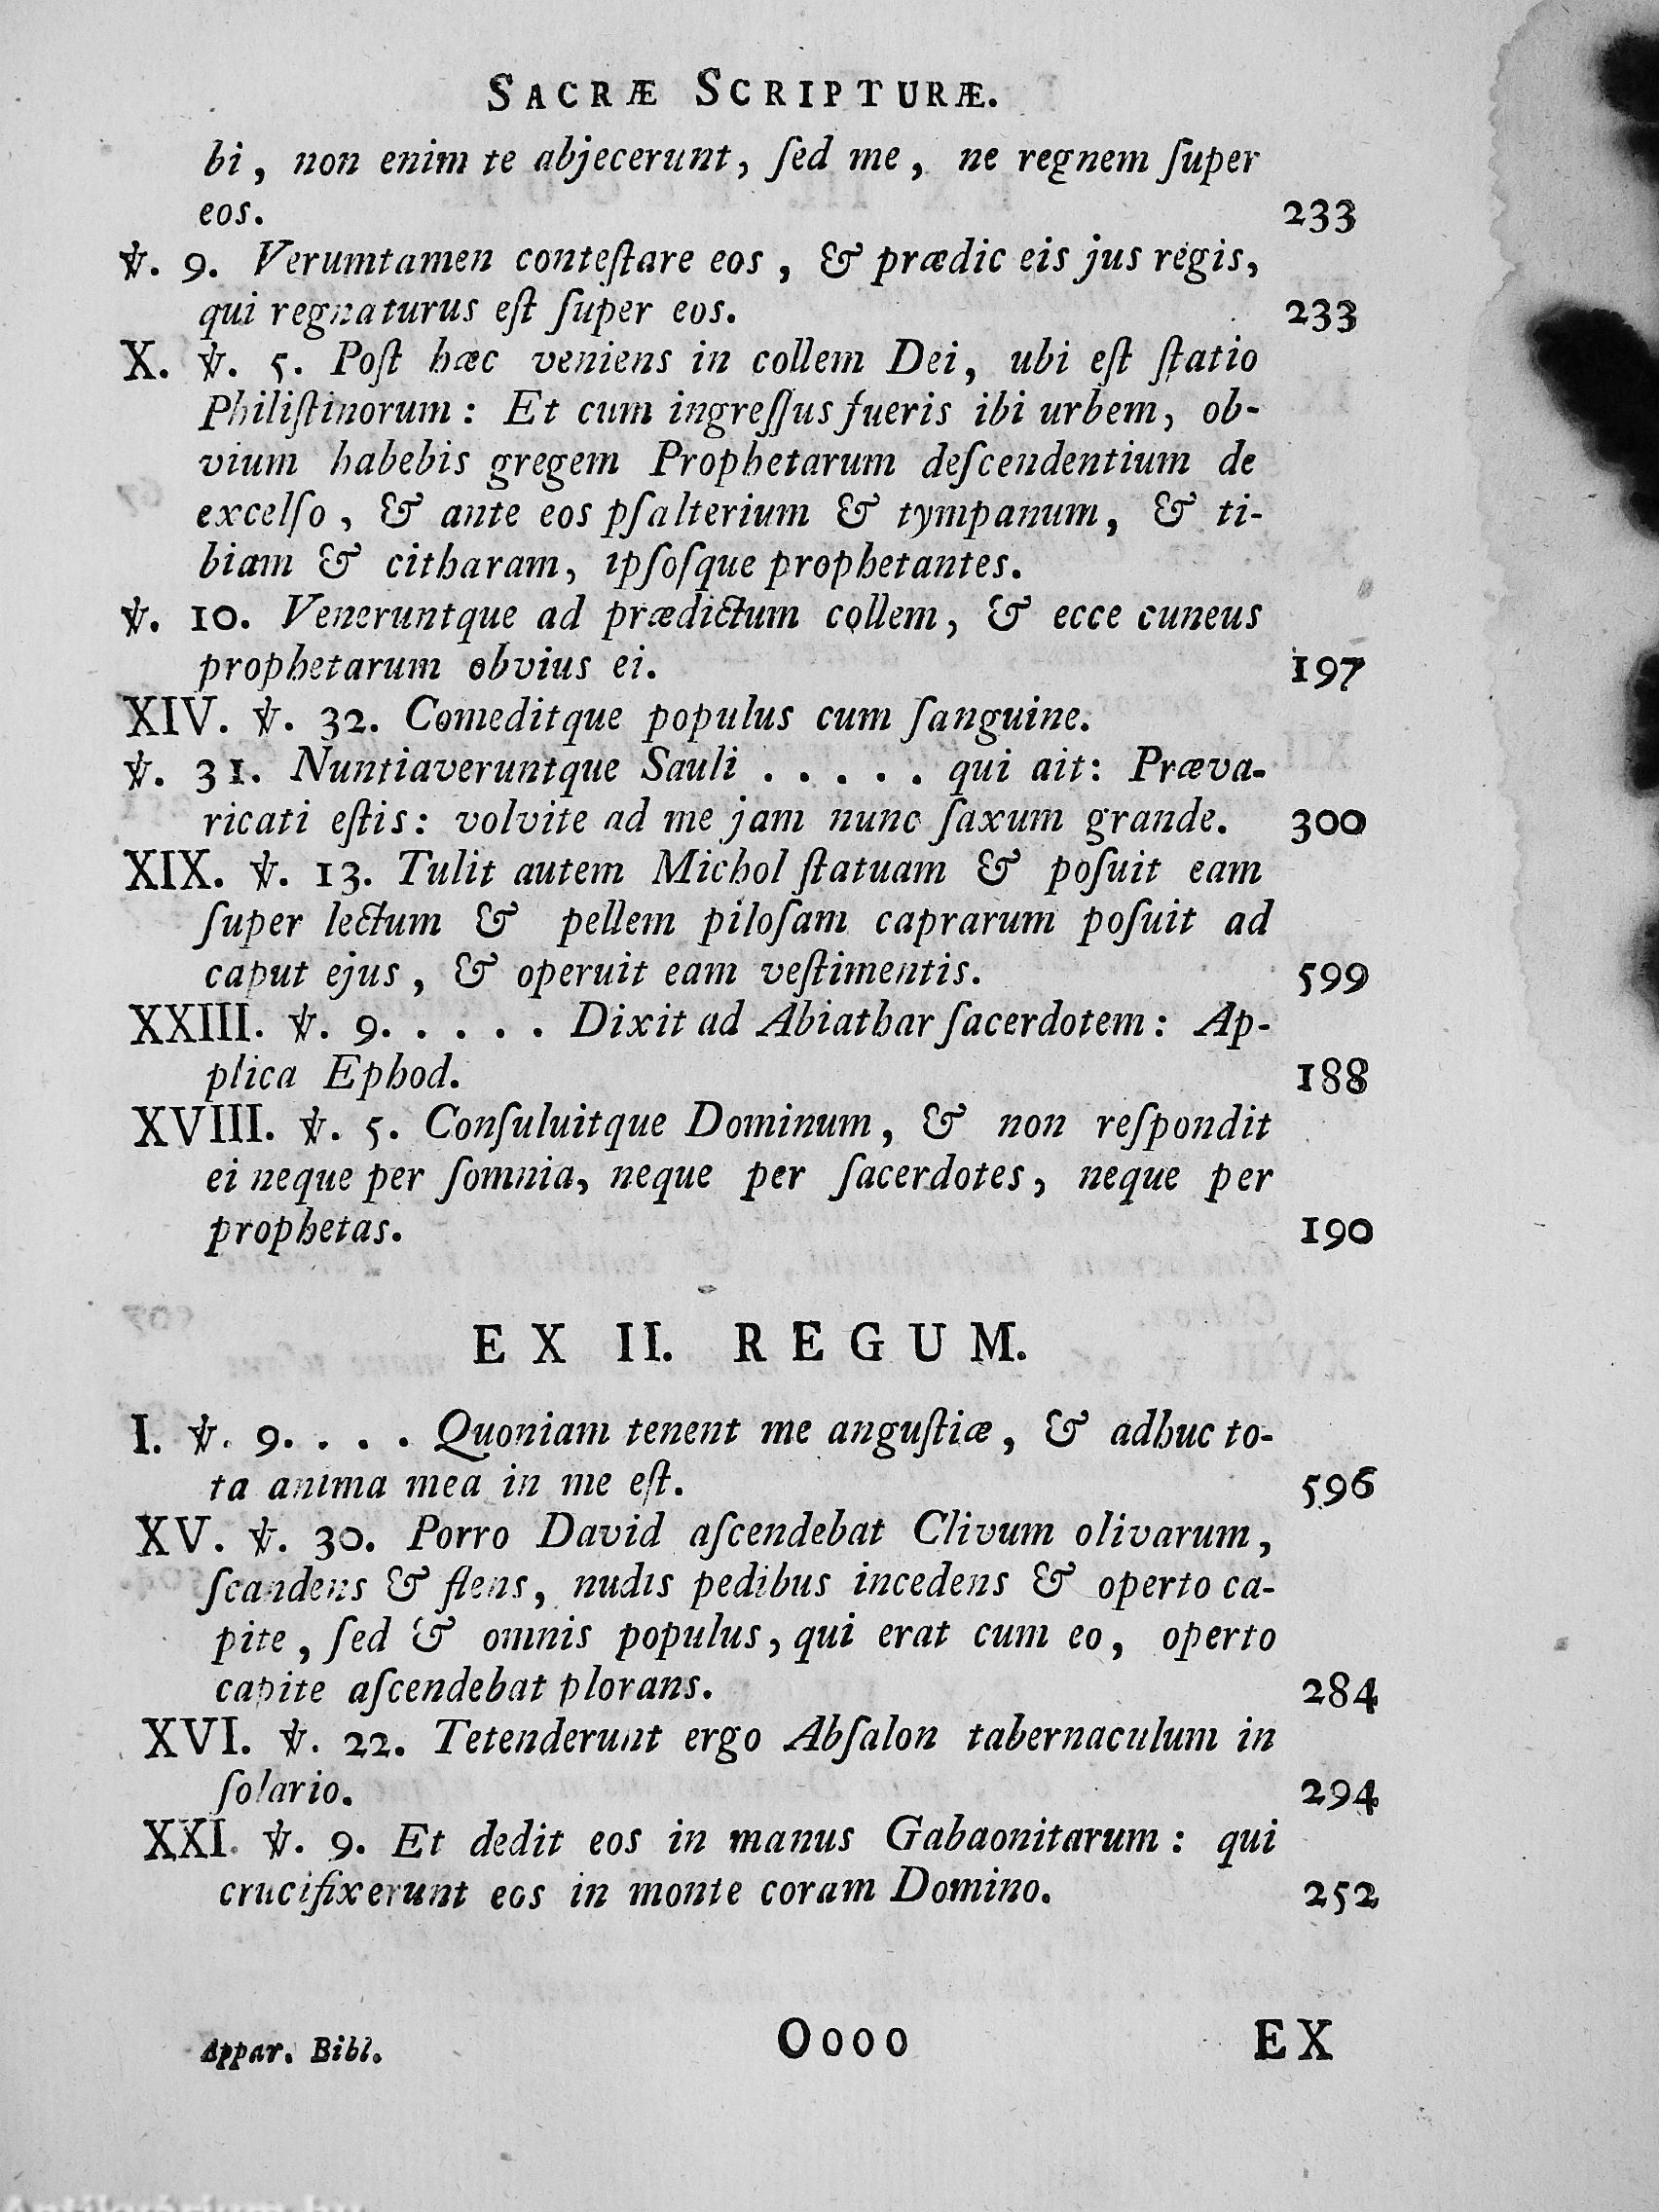 SACRÆ SCRIPTURÆ.
bi, non enim te abjecerunt, ſed me, ne regnem ſuper
eos. 233
℣. 9. Verumtamen conteſtare eos, & prædic eis jus regis,
qui regnaturus eſt ſuper eos. 233
X. ℣. 5. Poſt hæc veniens in collem Dei, ubi eſt ſtatio
Philiſtinorum: Et cum ingreſſus fueris ibi urbem, ob-
vium habebis gregem Prophetarum deſcendentium de
excelſo, & ante eos pſalterium & tympanum, & ti-
biam & citharam, ipſoſque prophetantes.
℣. 10. Veneruntque ad prædictum collem, & ecce cuneus
prophetarum obvius ei. 197
XIV. ℣. 32. Comeditque populus cum ſanguine.
℣. 31. Nuntiaveruntque Sauli . . . . . qui ait: Præva-
ricati eſtis: volvite ad me jam nunc ſaxum grande. 300
XIX. ℣. 13. Tulit autem Michol ſtatuam & poſuit eam
ſuper lectum & pellem piloſam caprarum poſuit ad
caput ejus, & operuit eam veſtimentis. 599
XXIII. ℣. 9. . . . . Dixit ad Abiathar ſacerdotem: Ap-
plica Ephod. 188
XVIII. ℣. 5. Conſuluitque Dominum, & non reſpondit
ei neque per ſomnia, neque per ſacerdotes, neque per
prophetas. 190
EX II. REGUM.
I. ℣. 9. . . . Quoniam tenent me anguſtiæ, & adhuc to-
ta anima mea in me eſt. 596
XV. ℣. 30. Porro David aſcendebat Clivum olivarum,
ſcandens & flens, nudis pedibus incedens & operto ca-
pite, ſed & omnis populus, qui erat cum eo, operto
capite aſcendebat plorans. 284
XVI. ℣. 22. Tetenderunt ergo Abſalon tabernaculum in
ſolario. 294
XXI. ℣. 9. Et dedit eos in manus Gabaonitarum: qui
crucifixerunt eos in monte coram Domino. 252
Appar. Bibl. Oooo EX